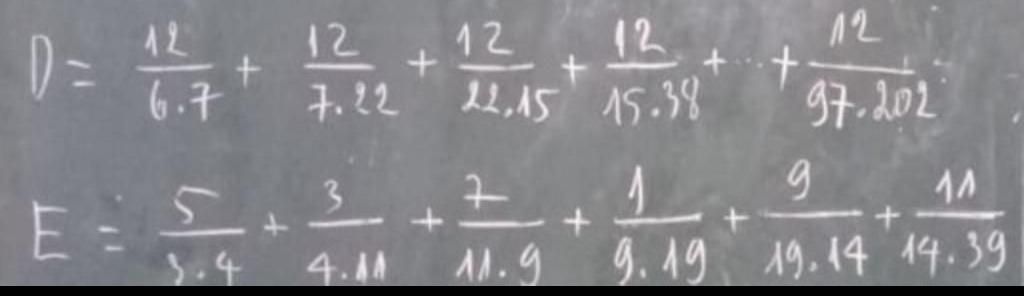 D = 12/6.7 + 12/7.22 + 12/22.15 + 12/15.38 + ... + 12/97.202
E = 5/3.4 + 3/4.11 + 7/11.9 + 1/9.19 + 9/19.14 + 11/14.39